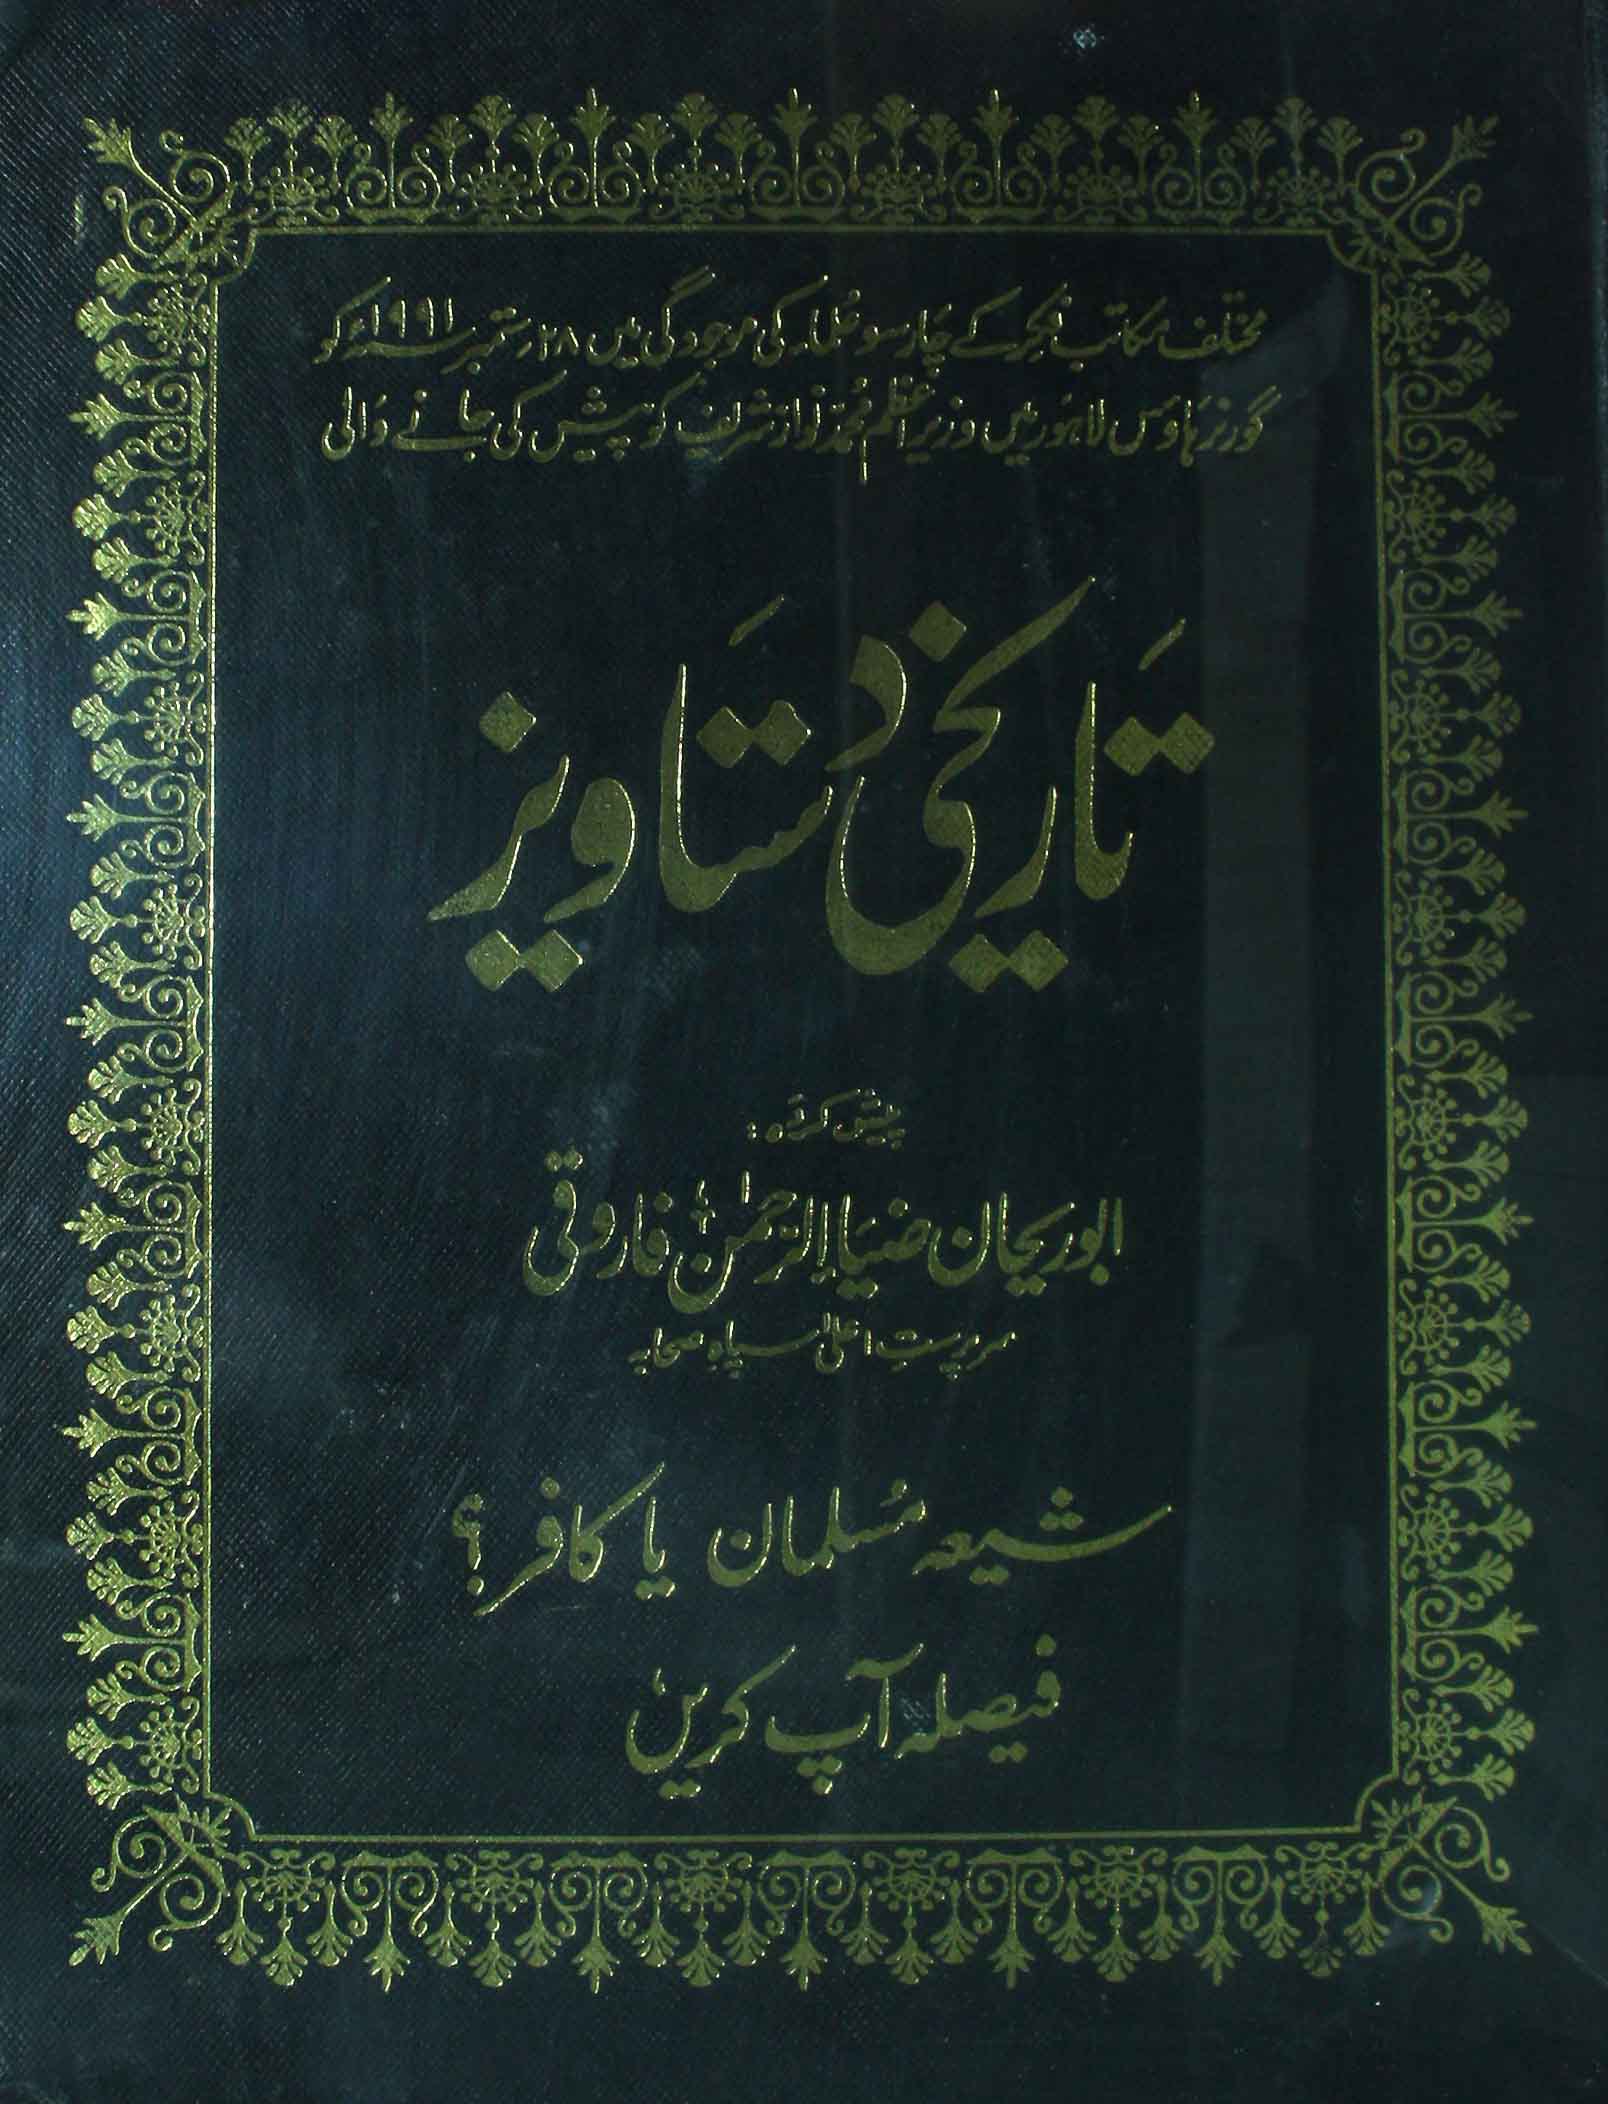 مختلف مکاتب فکر کے چار سو علماء کی موجودگی میں ۲۸ ستمبر ۱۹۹۱ء کو
گورنر ہاؤس لاہور میں وزیر اعظم محمد نواز شریف کو پیش کی جانے والی
تاریخی دستاویز
پیش کردہ:
ابوریحان ضیاء الرحمٰن فاروقی
سرپرست اعلیٰ سپاہ صحابہ
شیعہ مسلمان یا کافر؟
فیصلہ آپ کریں